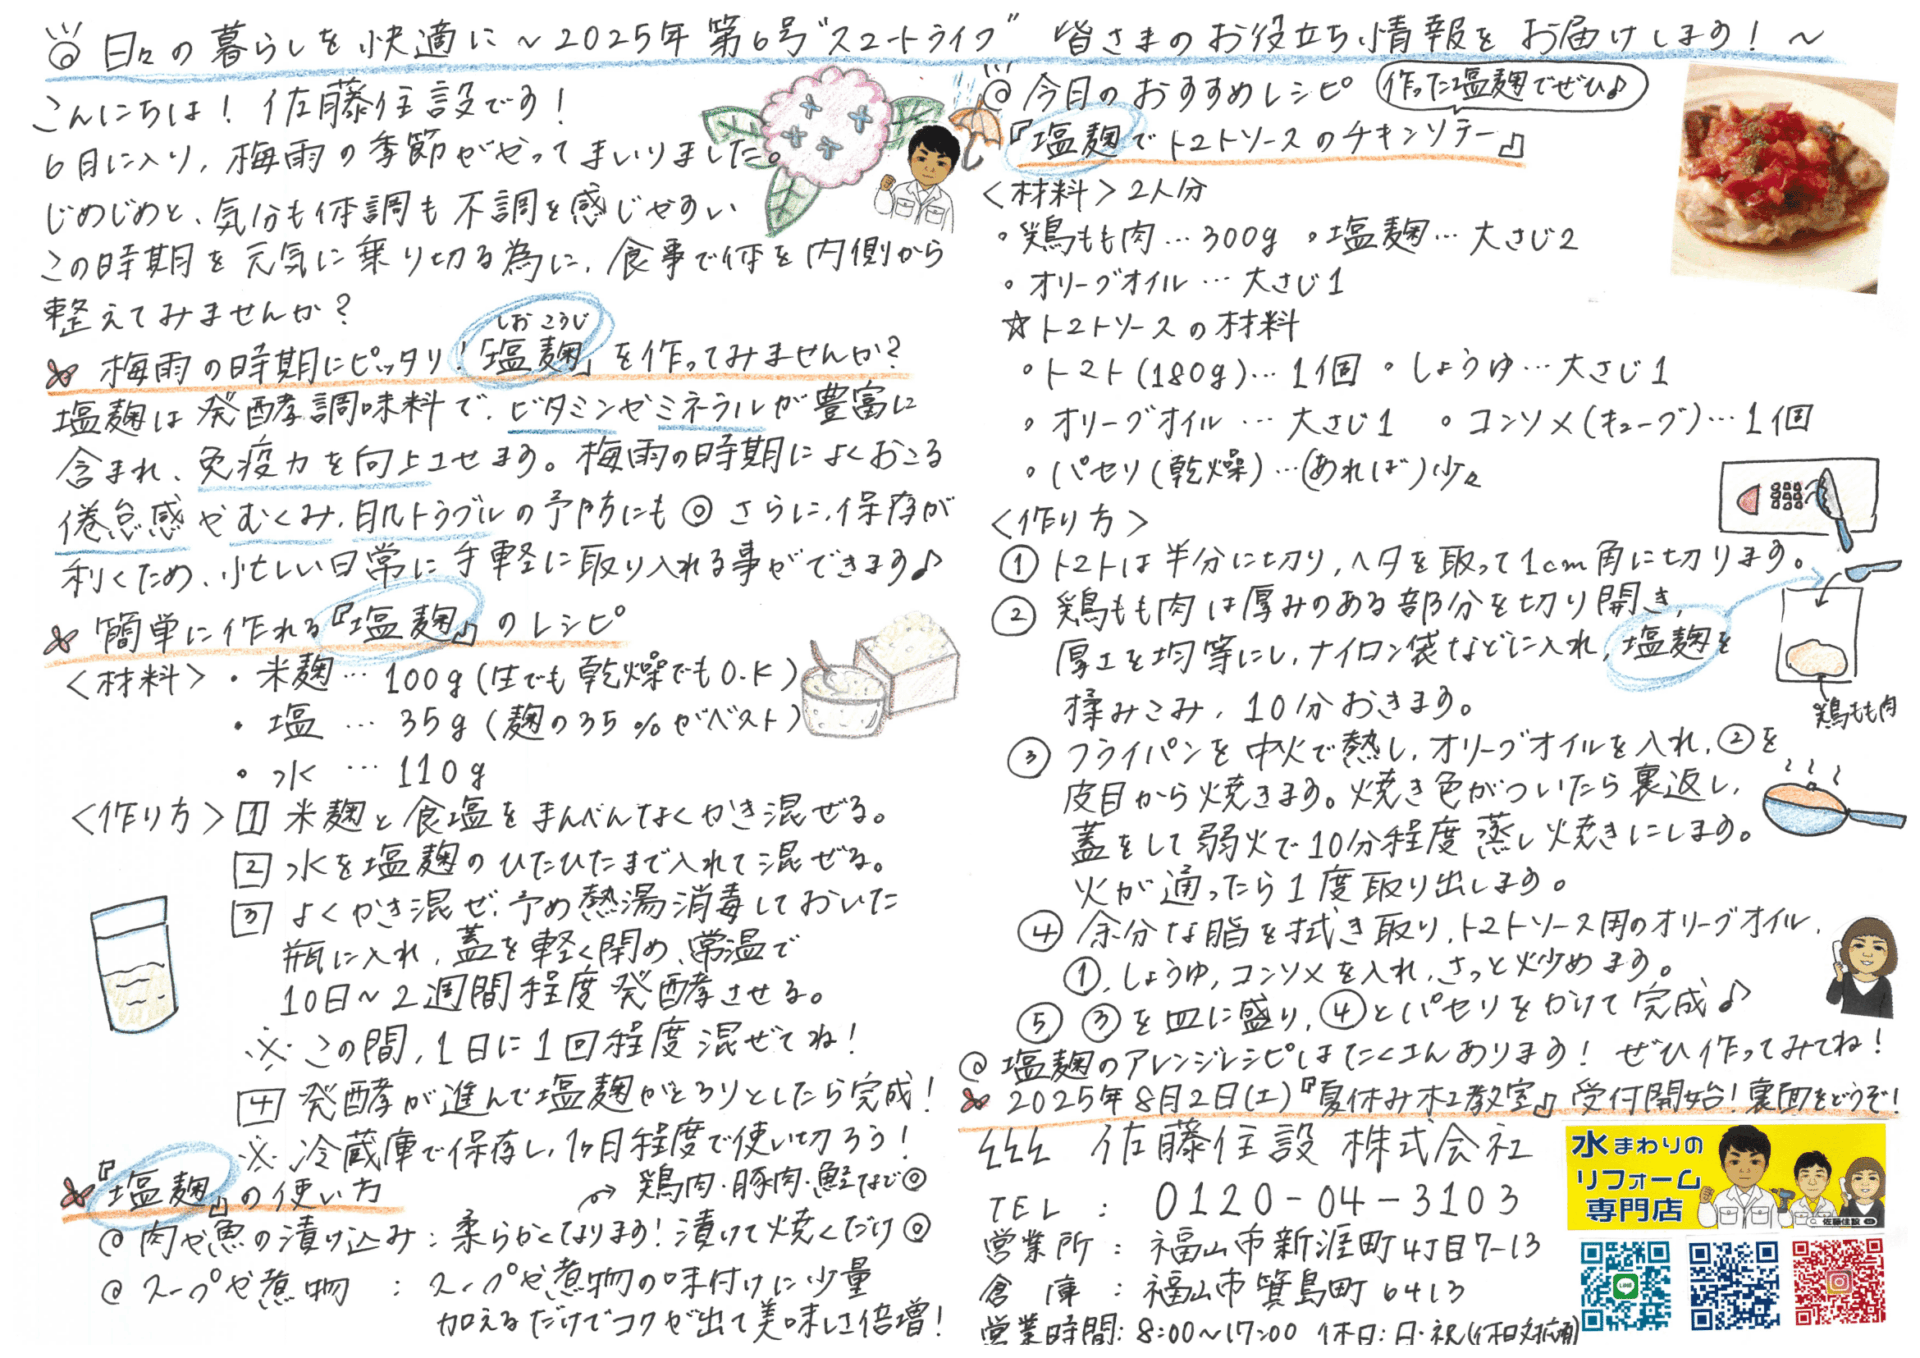 ◎日々の暮らしを快適に～2025年 第6号"スマートライフ" 皆さまのお役立ち情報をお届けします！～
こんにちは！佐藤住設です！
6月に入り、梅雨の季節がやってまいりました。
じめじめと、気分も体調も不調を感じやすい
この時期を元気に乗り切る為に、食事で体を内側から
整えてみませんか？
しおこうじ
梅雨の時期にピッタリ！「塩麹」を作ってみませんか？
塩麹は発酵調味料で、ビタミンやミネラルが豊富に
含まれ、免疫力を向上させます。梅雨の時期によくおこる
倦怠感やむくみ、肌トラブルの予防にも◎さらに、保存が
利くため、忙しい日常に手軽に取り入れる事ができます♪
簡単に作れる『塩麹』のレシピ
＜材料＞・米麹…100g(生でも乾燥でもO.K)
・塩…35g(麹の35%がベスト)
・水…110g
＜作り方＞1 米麹と食塩をまんべんなくかき混ぜる。
2 水を塩麹のひたひたまで入れて混ぜる。
3 よくかき混ぜ、予め熱湯消毒しておいた
瓶に入れ、蓋を軽く閉め、常温で
10日～2週間程度発酵させる。
※この間、1日に1回程度混ぜてね！
4 発酵が進んで塩麹がとろりとしたら完成！
※冷蔵庫で保存し、1ヶ月程度で使い切ろう！
『塩麹』の使い方
鶏肉・豚肉・鮭など◎
@肉や魚の漬け込み：柔らかくなります！漬けて焼くだけ◎
@スープや煮物：スープや煮物の味付けに少量
加えるだけでコクが出て美味しさ倍増！
◎今日のおすすめレシピ
作った塩麹でぜひ♪
『塩麹でトマトソースのチキンソテー』
＜材料＞2人分
・鶏もも肉…300g ・塩麹…大さじ2
・オリーブオイル…大さじ1
☆トマトソースの材料
・トマト(180g)…1個 ・しょうゆ…大さじ1
・オリーブオイル…大さじ1 ・コンソメ(キューブ)…1個
・パセリ(乾燥)…(あれば)少々
＜作り方＞
①トマトは半分に切り、ヘタを取って1cm角に切ります。
②鶏もも肉は厚みのある部分を切り開き、
厚さを均等にし、ナイロン袋などに入れ、塩麹を
揉みこみ、10分おきます。
鶏もも肉
③フライパンを中火で熱し、オリーブオイルを入れ、②を
皮目から焼きます。焼き色がついたら裏返し、
蓋をして弱火で10分程度蒸し焼きにします。
火が通ったら1度取り出します。
④余分な脂を拭き取り、トマトソース用のオリーブオイル、
①、しょうゆ、コンソメを入れ、さっと炒めます。
⑤③を皿に盛り、④とパセリをかけて完成♪
@塩麹のアレンジレシピはたくさんあります！ぜひ作ってみてね！
2025年8月2日(土)『夏休み木工教室』受付開始！裏面をどうぞ！
佐藤住設 株式会社
TEL：0120-04-3103
営業所：福山市新涯町4丁目7-13
倉庫：福山市箕島町6413
営業時間：8:00～17:00 休日：日・祝(休日対応有)
水まわりの
リフォーム
専門店
佐藤住設
LINE